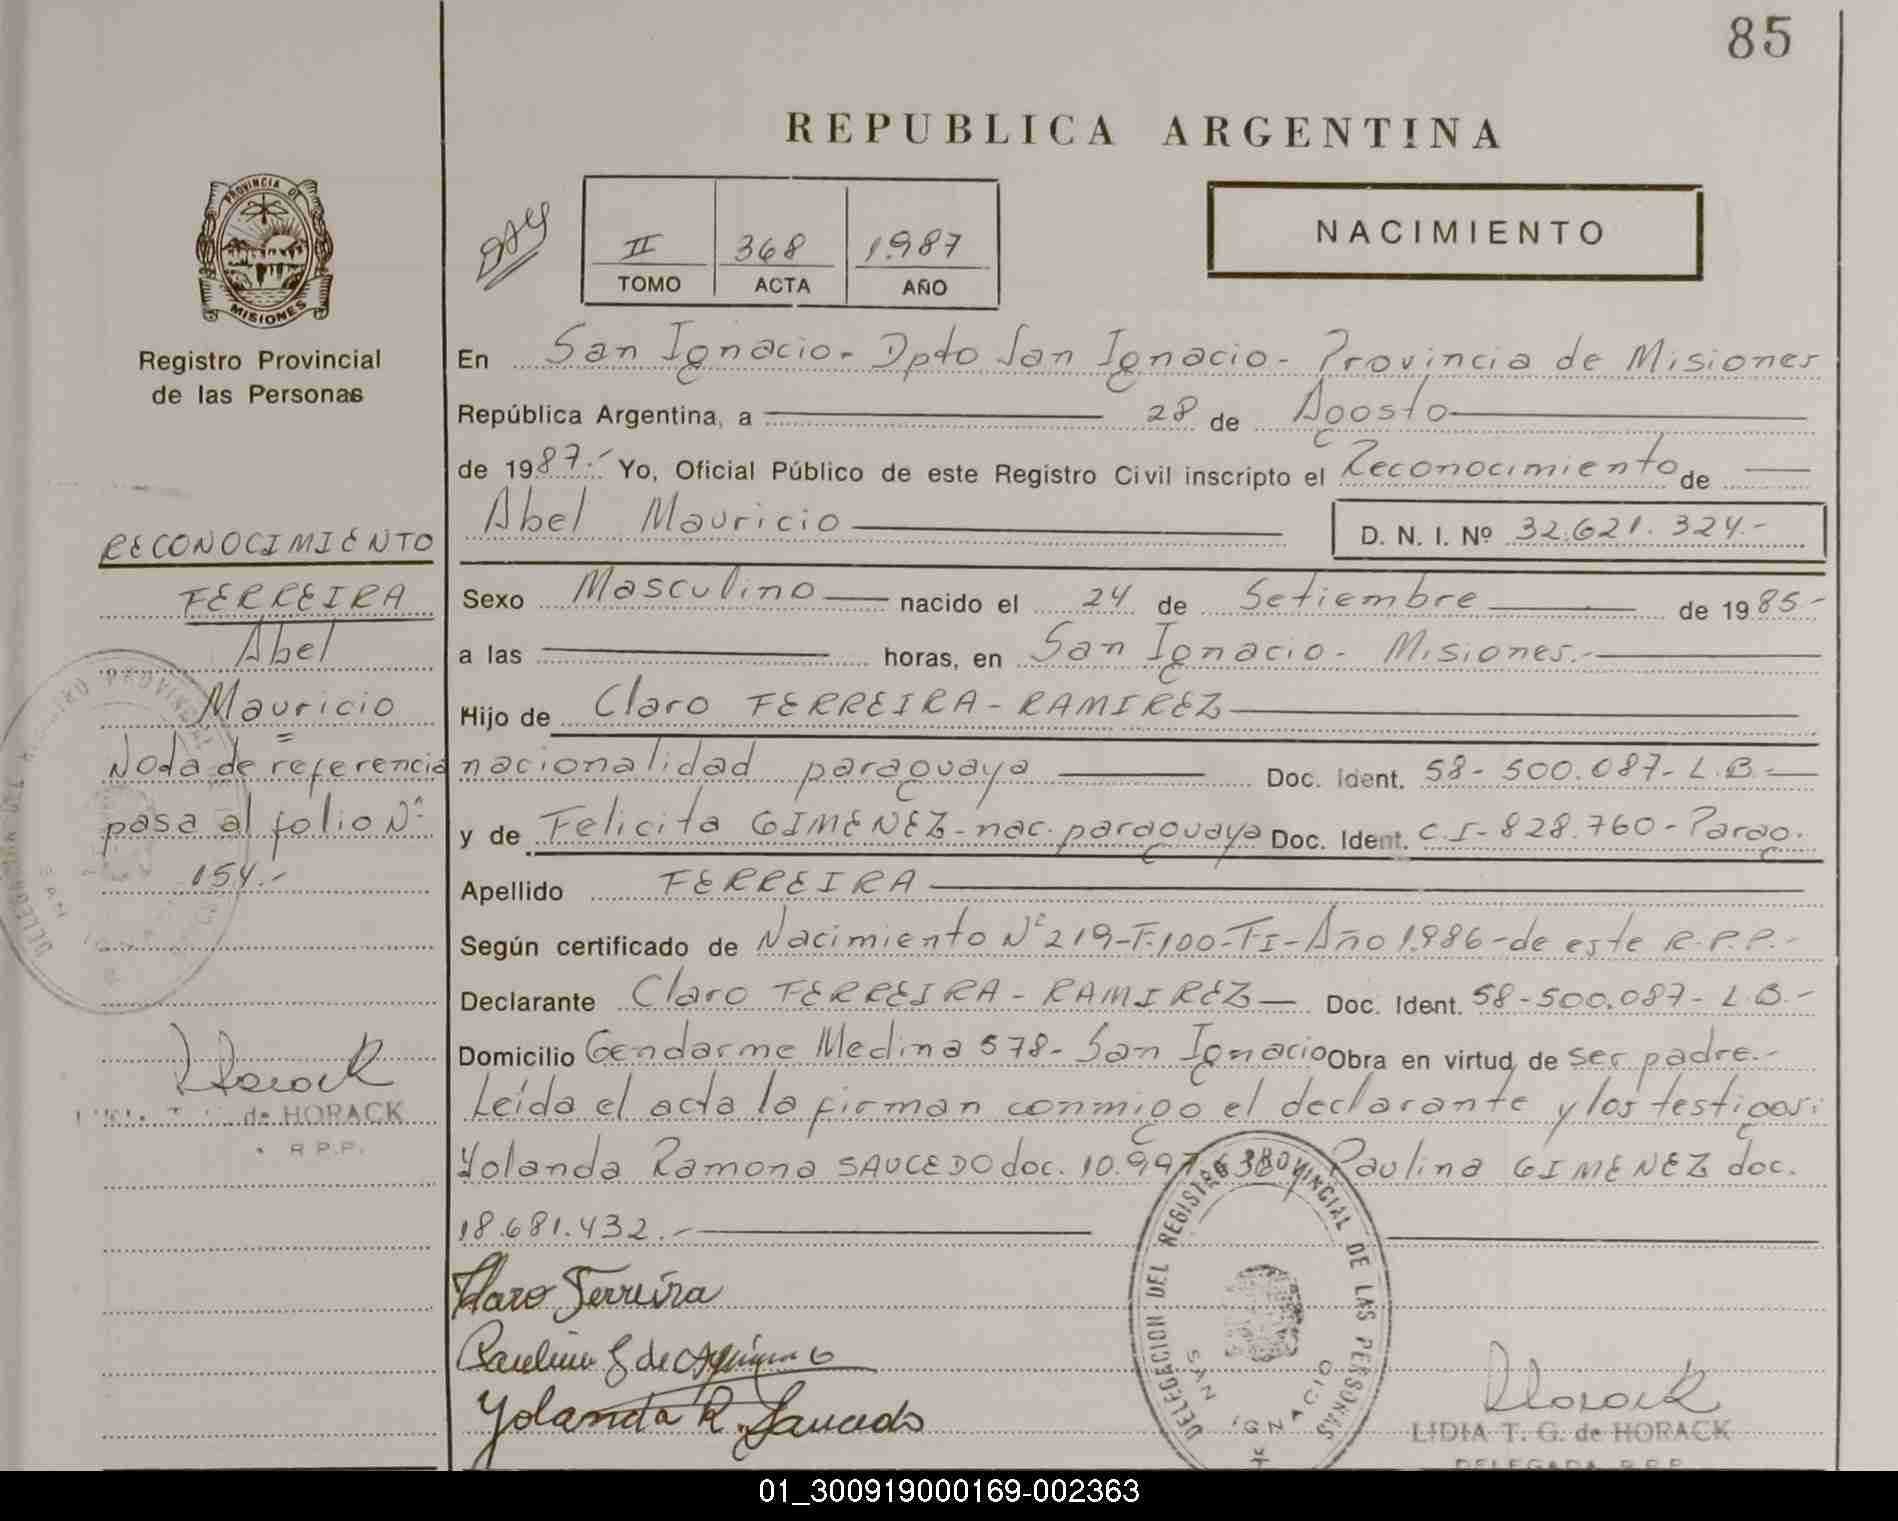 85
REPUBLICA ARGENTINA
PROVINCIA DE
MISIONES
Registro Provincial
de las Personas
II 368 1.987
TOMO ACTA AÑO
NACIMIENTO
En San Ignacio- Dpto San Ignacio- Provincia de Misiones
República Argentina, a 28 de Agosto
de 1987.- Yo, Oficial Público de este Registro Civil inscripto el Reconocimiento de
Abel Mauricio
D. N. I. Nº 32.621.324.-
Sexo Masculino nacido el 24 de Setiembre de 1985-
a las horas, en San Ignacio- Misiones.-
Hijo de Claro FERREIRA-RAMIREZ
nacionalidad paraguaya Doc. Ident. 58-500.087-L.B.-
y de Felicita GIMENEZ-nac. paraguaya Doc. Ident. C.I-828.760-Parag.
Apellido FERREIRA
Según certificado de Nacimiento Nº219-F.100-TI-Año 1.986-de este R.P.P.-
Declarante Claro FERREIRA-RAMIREZ Doc. Ident. 58-500.087-L.B.-
Domicilio Gendarme Medina 578- San Ignacio Obra en virtud de ser padre.-
Leída el acta la firman conmigo el declarante y los testigos:
Yolanda Ramona SAUCEDO doc. 10.997.636 y Paulina GIMENEZ doc.
18.681.432.-
RECONOCIMIENTO
FERREIRA
Abel
Mauricio
Nota de referencia
pasa al folio Nº
154.-
Horack
de HORACK
R.P.P.
Claro Ferreira
Paulina G de
Yolanda R. Saucedo
DELEGACION DEL REGISTRO PROVINCIAL DE LAS PERSONAS
SAN IGNACIO
Horack
LIDIA T. G. de HORACK
DELEGADA R.P.P.
01_300919000169-002363